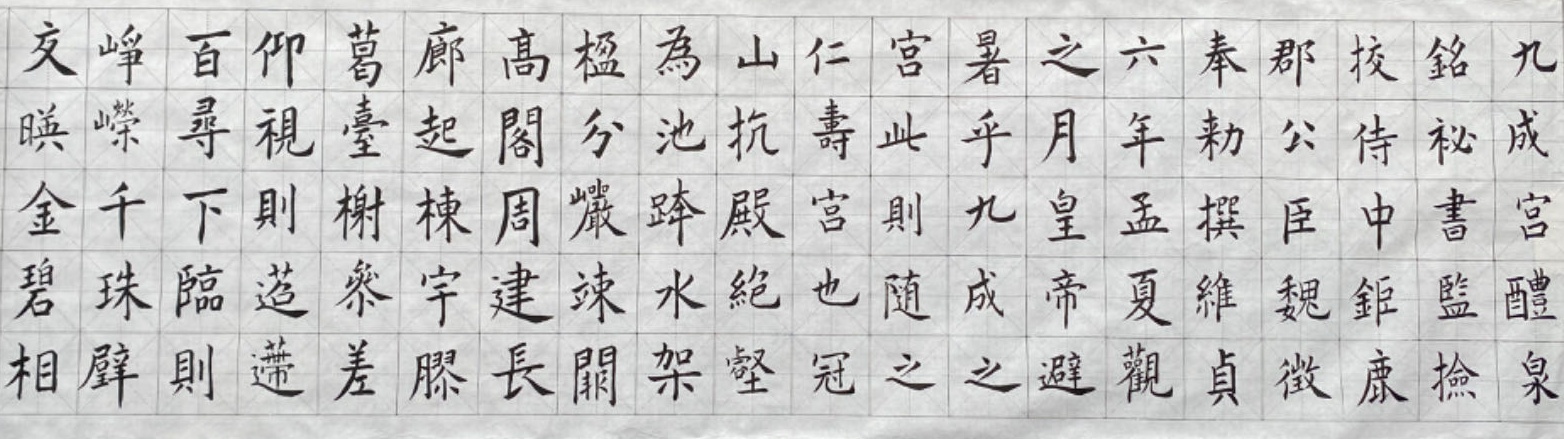 九成宮醴泉
銘祕書監撿
挍侍中鉅鹿
郡公臣魏徵
奉勑撰維貞
六年孟夏觀
之月皇帝避
暑乎九成之
宮此則随之
仁壽宮也冠
山抗殿絶壑
為池跨水架
楹分巖竦闕
髙閣周建長
廊起棟宇膠
葛臺榭叅差
仰視則迢遰
百尋下臨則
崢嶸千珠璧
交暎金碧相